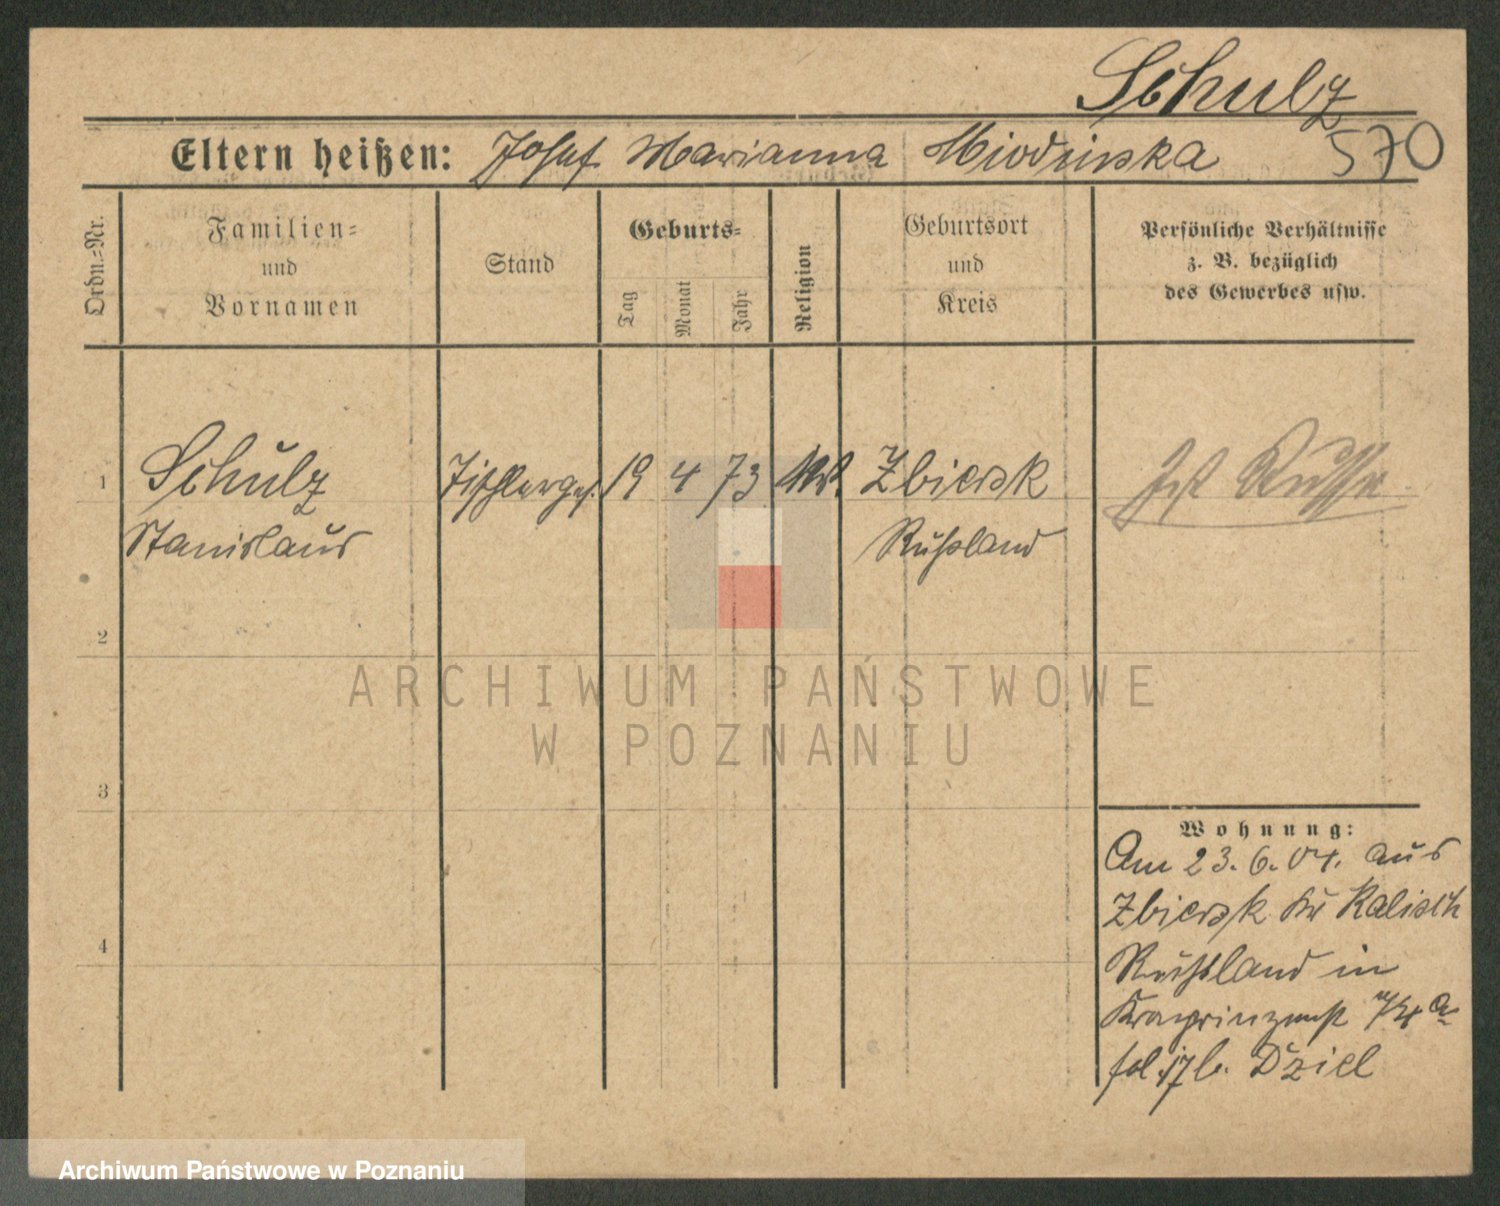 Schulz
570
Eltern heißen: Josef Marianna Miodzinska
Ordn.-Nr.
Familien-
und
Vornamen
Stand
Geburts-
Tag
Monat
Jahr
Religion
Geburtsort
und
Kreis
Persönliche Verhältnisse
z. B. bezüglich
des Gewerbes usw.
1
Schulz
Tischlerges.
19
4
73
Zbiersk
Ist Russe
Stanislaus
Rußland
2
ARCHIWUM PAŃSTWOWE
W POZNANIU
3
Wohnung:
Am 23. 6. 04. aus
Zbiersk Kr Kalisch
4
Rußland in
Kronprinzenst
fol. 17 b. Dziel
Archiwum Państwowe w Poznaniu